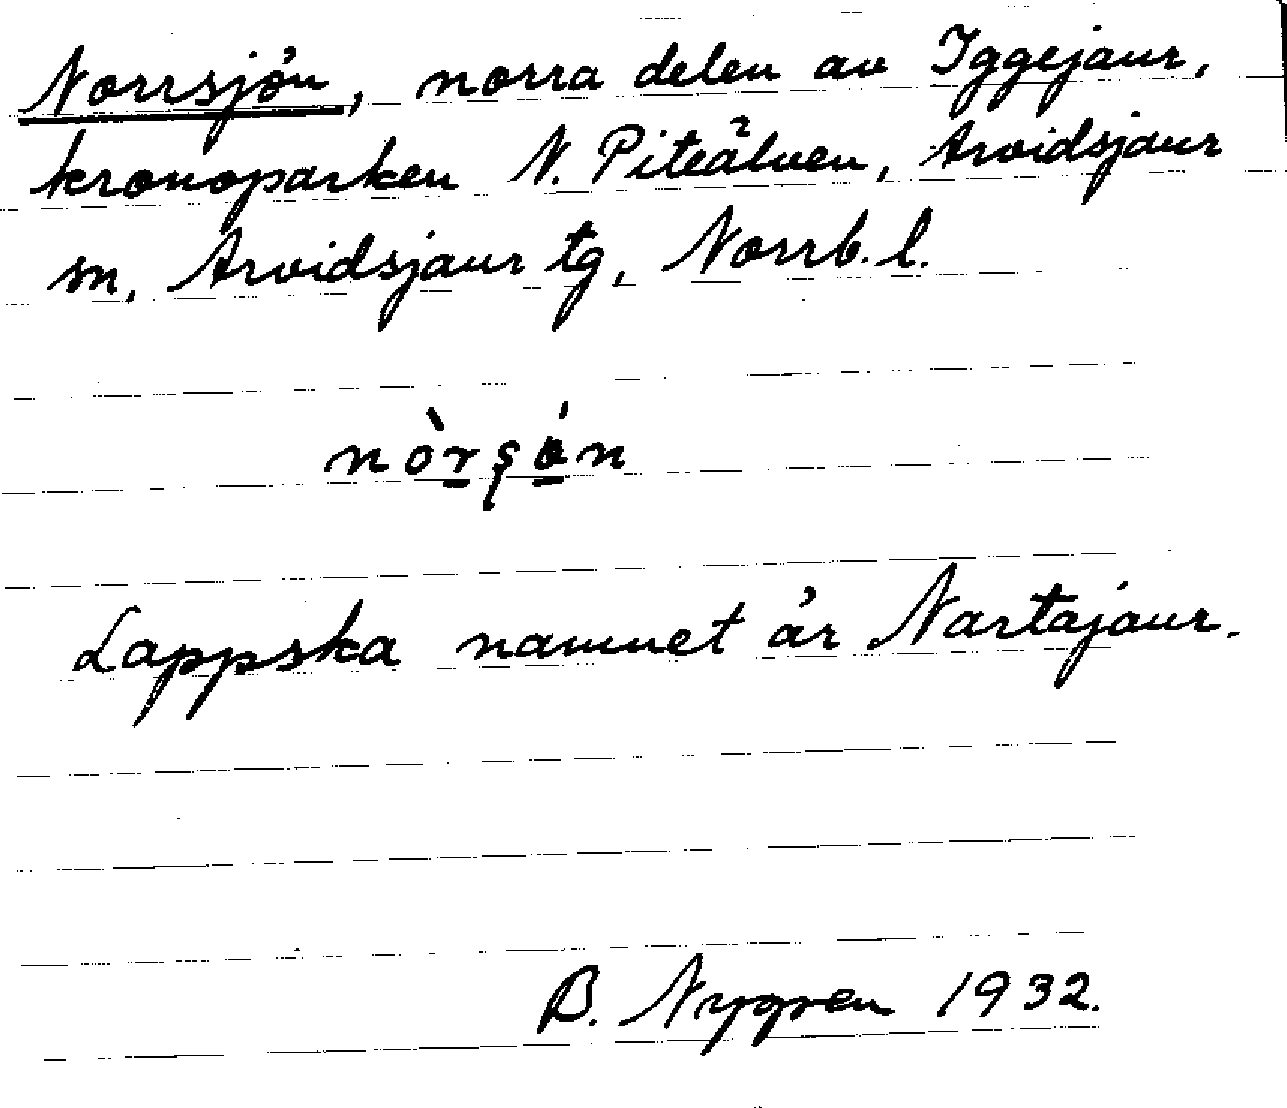 Norrsjön, norra delen av Iggejaur,
kronoparken N. Piteälven, Arvidsjaur
sn, Arvidsjaur tg, Norrb. l.
Lappska namnet är Nartajaur.
B. Nygren 1932.